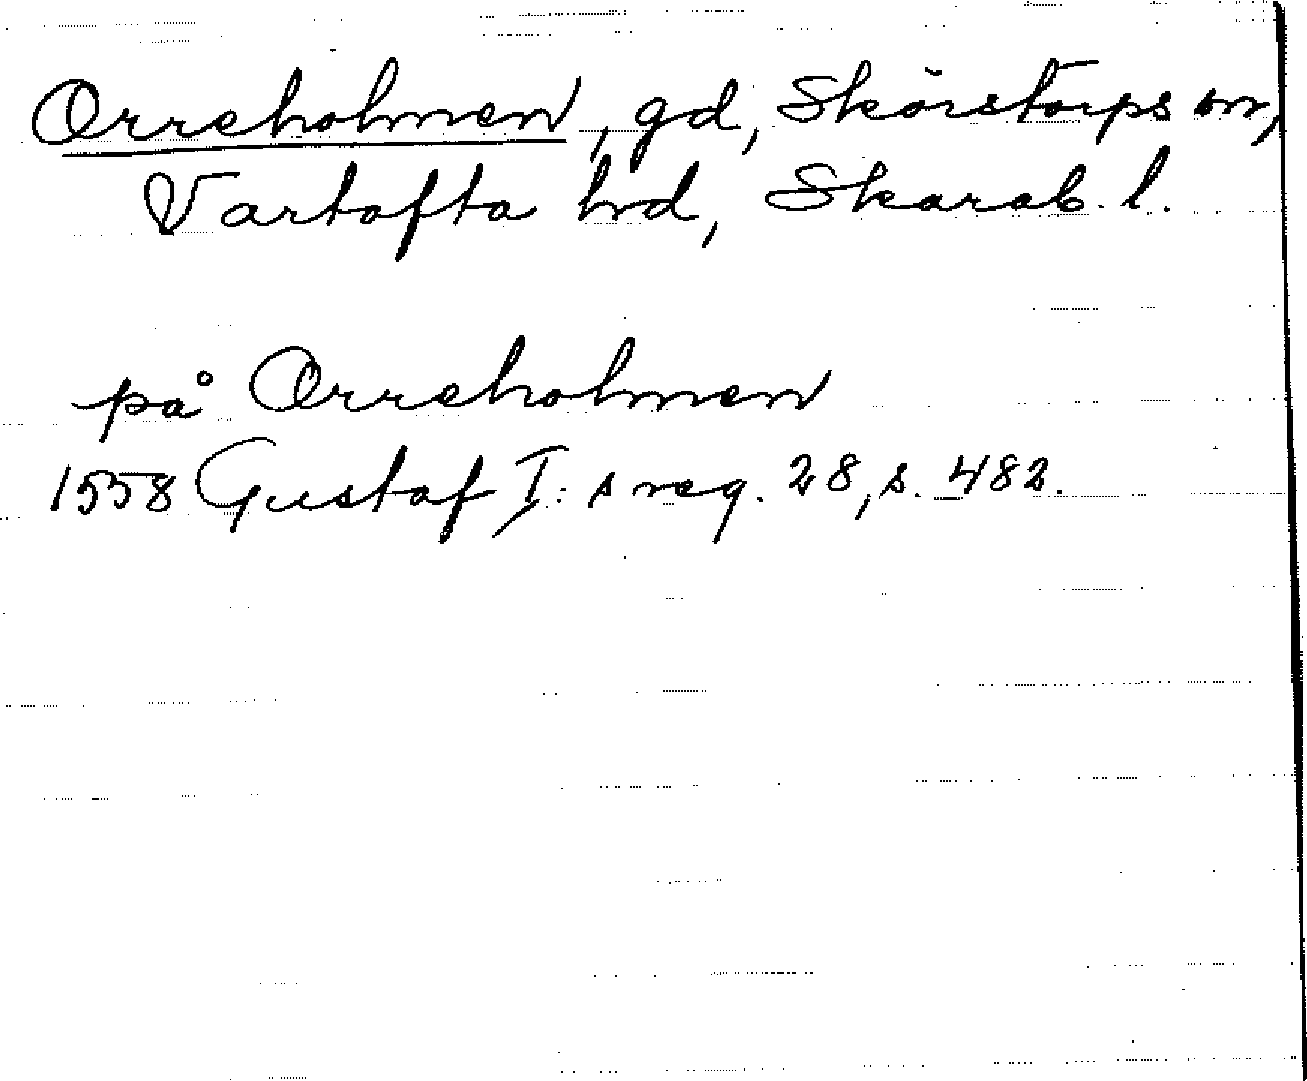 Orreholmen, gd, Skörstorps sn,
Vartofta hd, Skarab. l.
på Orreholmen
1558 Gustaf I: s reg. 28, s. 482.